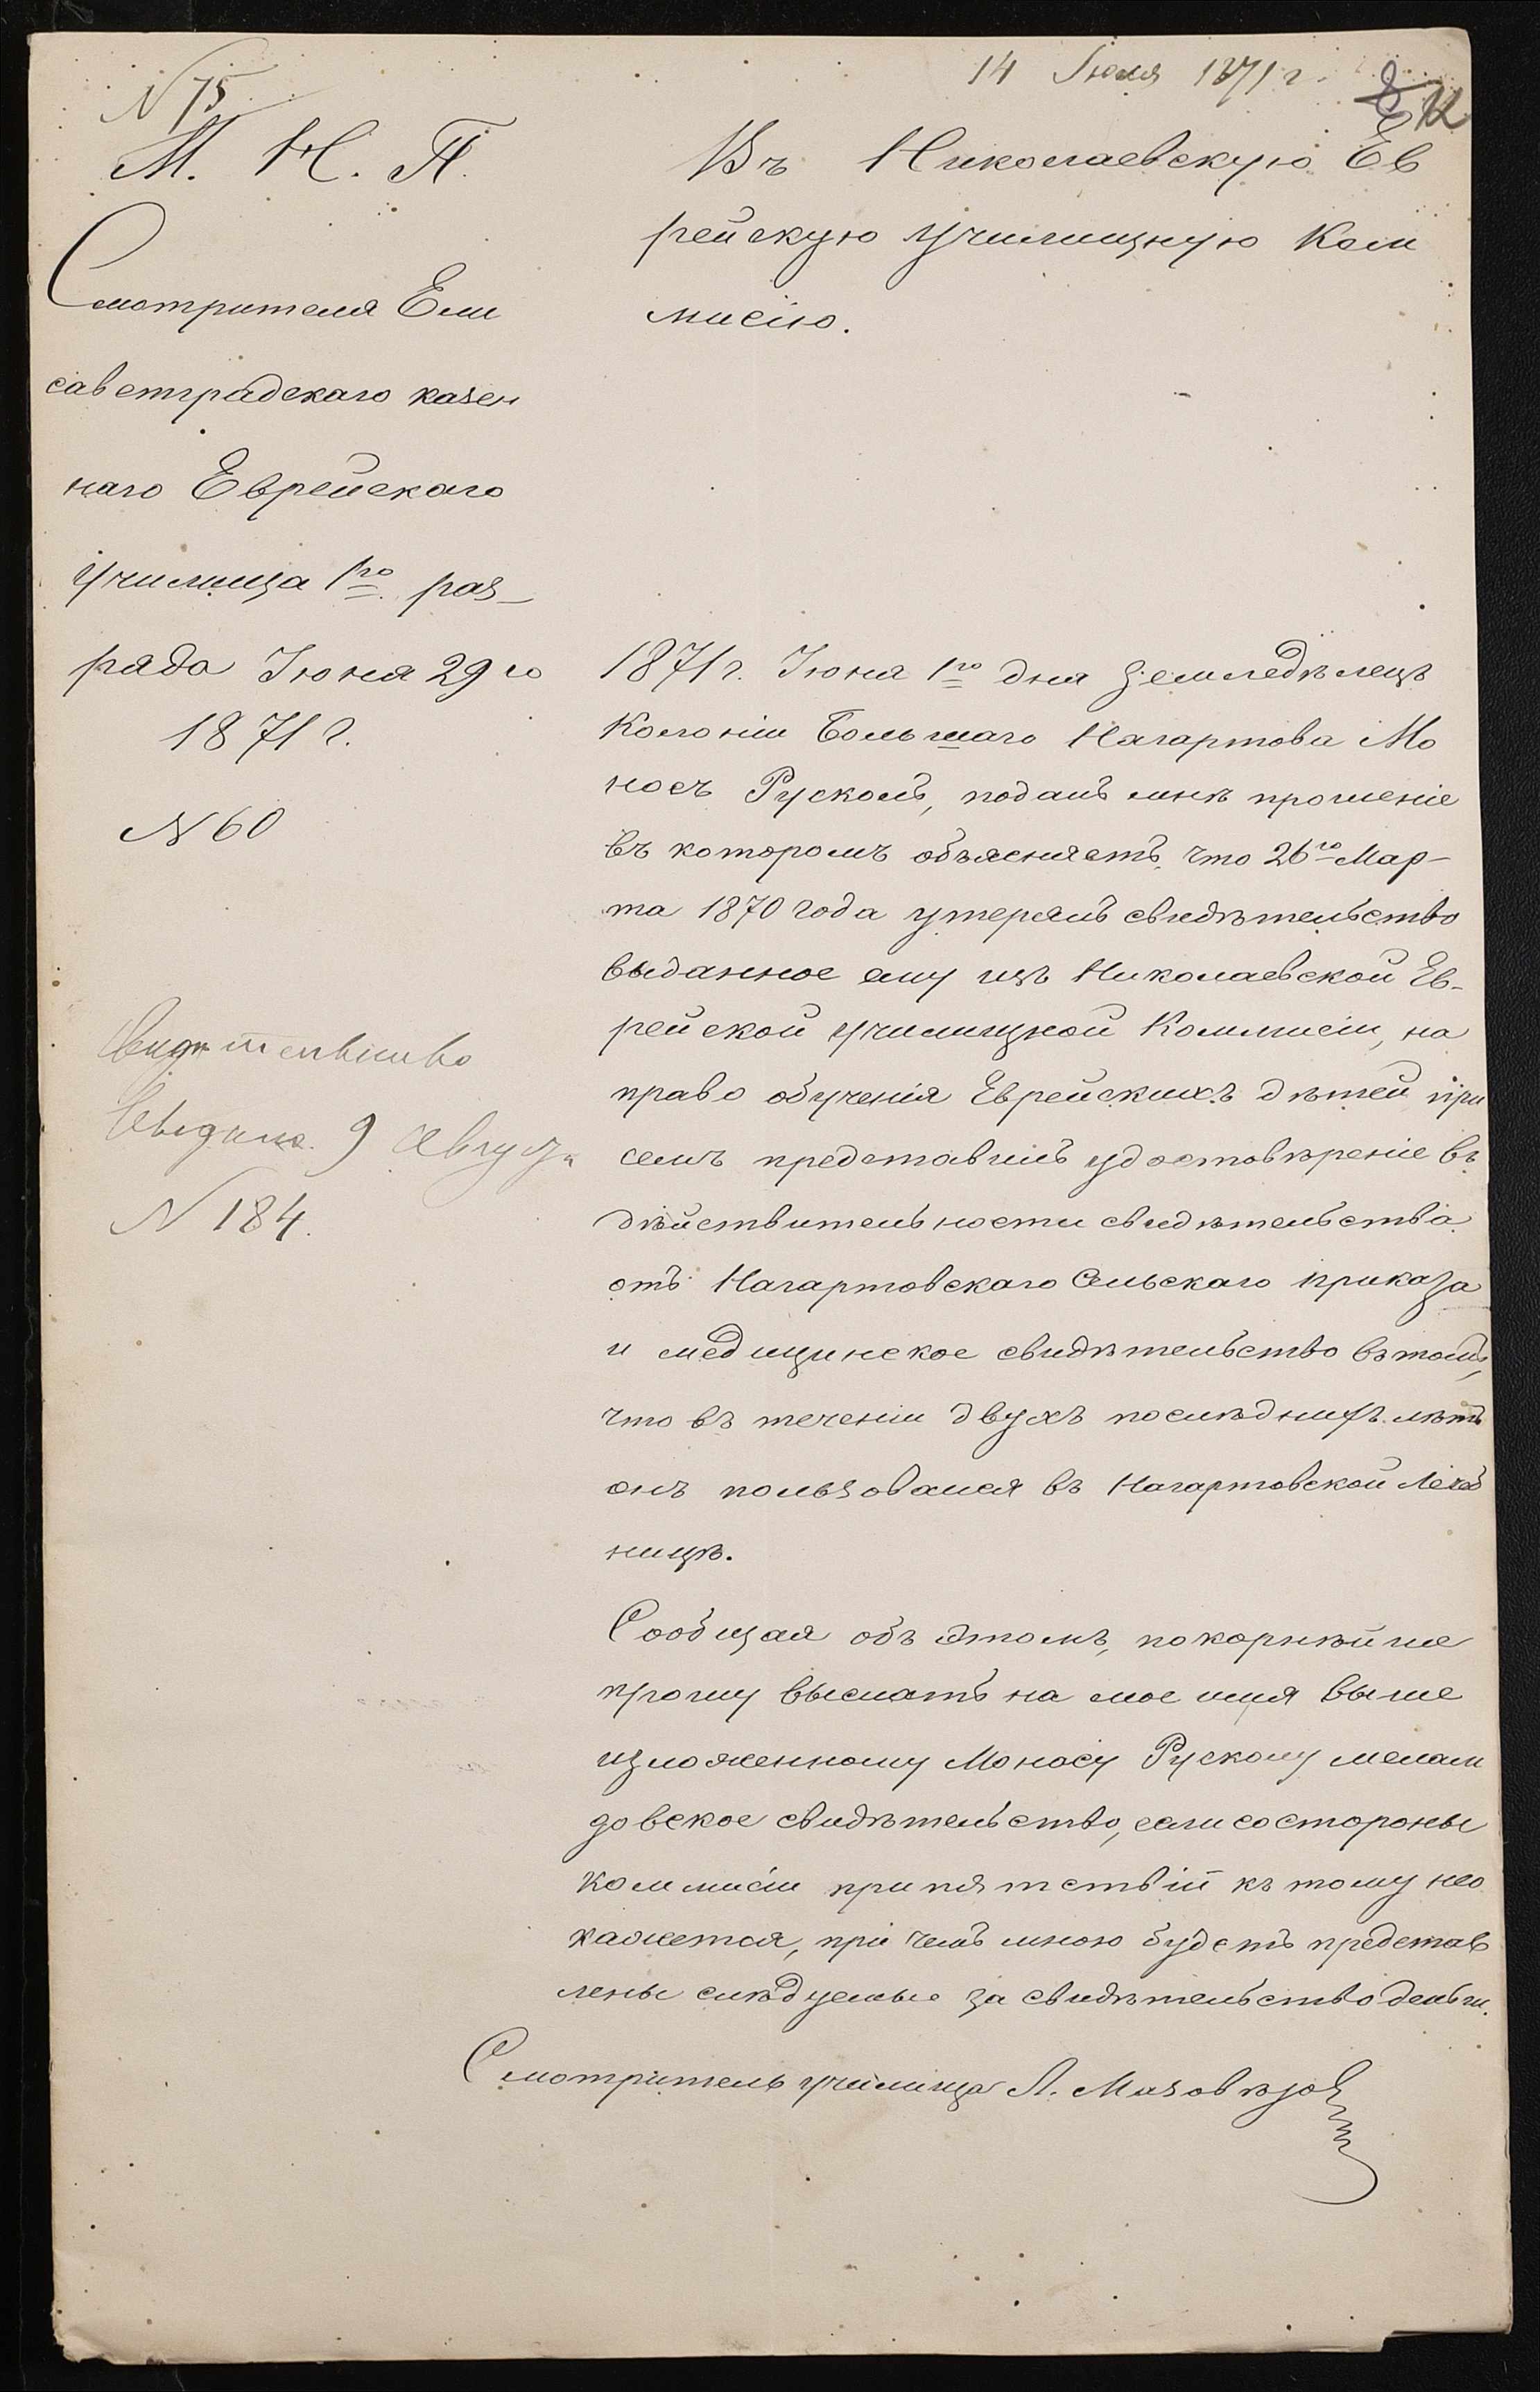 14 Июля 1871 г.
12
N 75
М. Н. П.
Смотрителя Ели
саветградскаго казен
наго Еврейскаго
училища 1го раз-
ряда Іюня 29го
1871 г.
N 60
Свидѣтельство
Выдано 9 Августа
N 184.
Въ Николаевскую Ев
рейскую училищную Ком
мисію.
1871 г. Іюня 1го дня Земледѣлецъ
Колоніи Большаго Нагартова Мо
носъ Рускомъ, подалъ мнѣ прошеніе
въ которомъ объясняетъ, что 26го Мар-
та 1870 года утерялъ свидѣтельство
выданное ему изъ Николаевской Ев-
рейской училищной Коммисіи, на
право обученія Еврейскихъ дѣтей при
семъ представилъ удостовѣреніе въ
дѣйствительности свидѣтельства
отъ Нагартовскаго Сельскаго приказа
и медицинское свидѣтельство въ томъ,
что въ теченіи двухъ послѣднихъ лѣтъ
онъ пользовался въ Нагартовской Лечеб
ницѣ.
Сообщая объ этомъ, покорнѣйше
прошу выслать на мое имя выше
изложенному Моносу Рускому мелам
довское свидѣтельство, если со стороны
коммисіи припятствій къ тому нео
кажется, при чемъ мною будетъ представ
лены слѣдуемые за свидѣтельство деньги.
Смотритель училища Л.